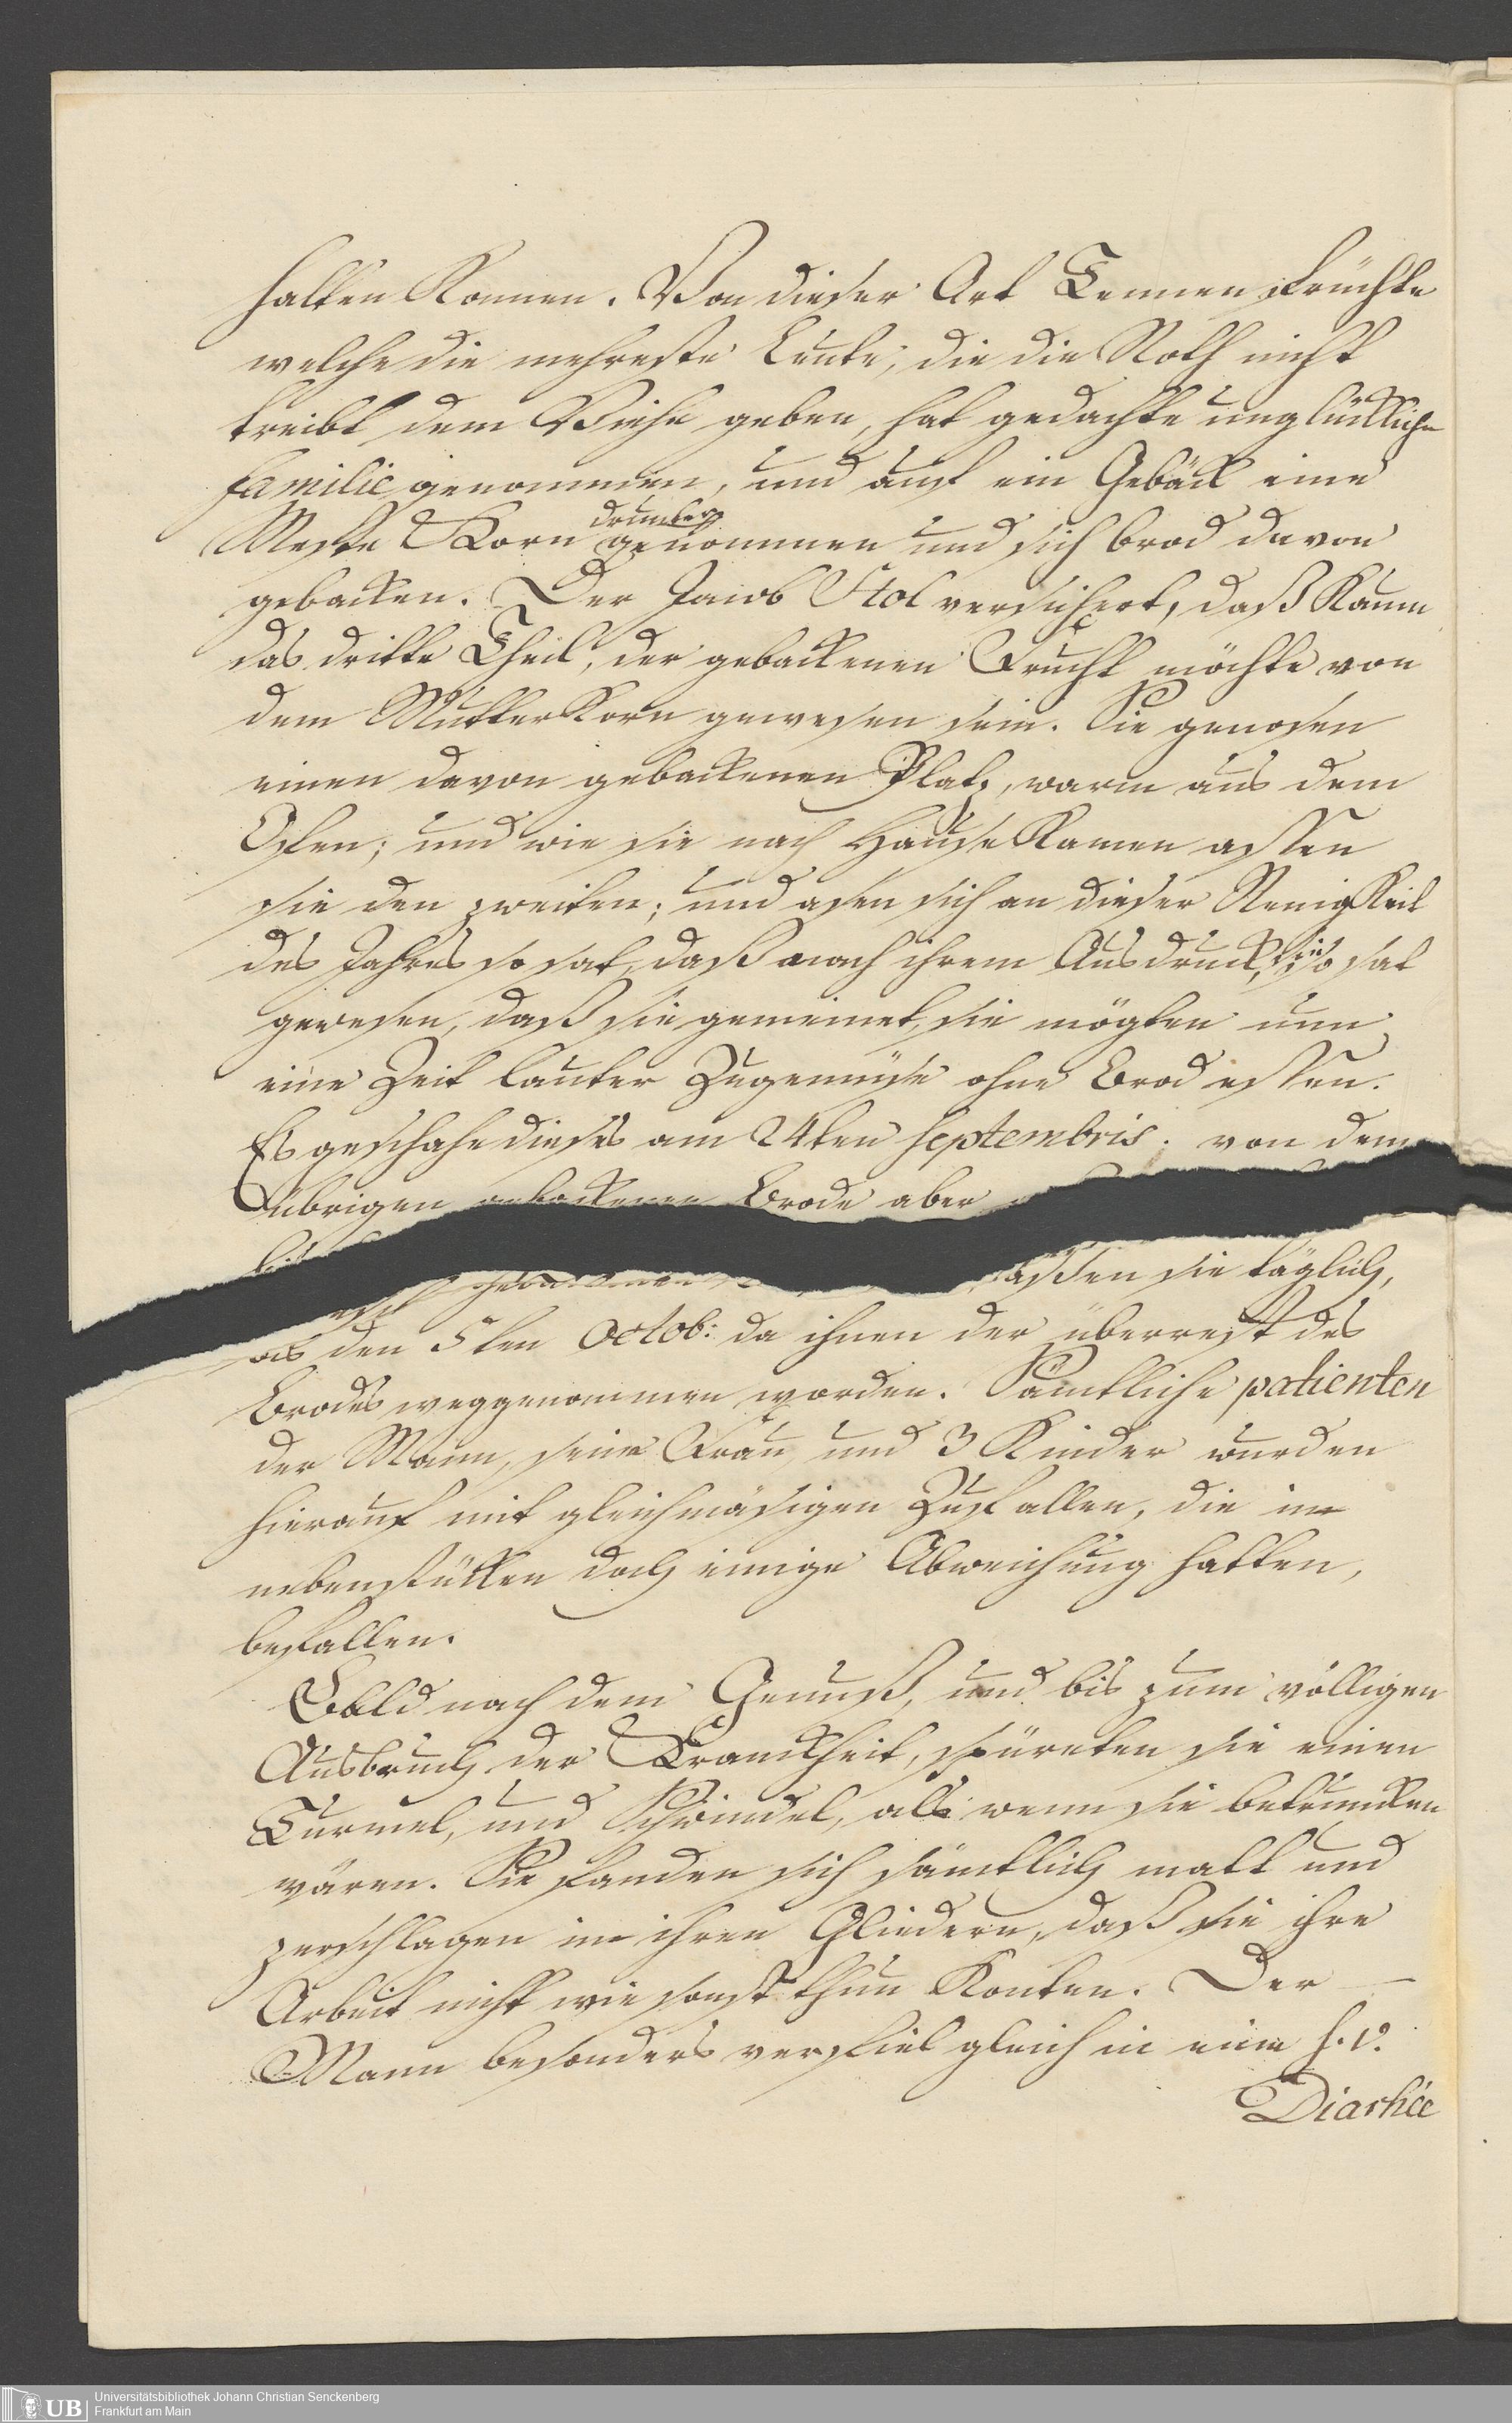 halten Konnen. Von dieser Art Tennen Früchte
welche die mehreste Leute, die die Noth nicht
treibt dem Viehe geben, hat gedachte unglückliche
familie genommen, und auf ein Gebäck eine
Meste Korn drunter genommen und sich brod davon
gebacken. Der Jacob Stol versichert, daß Kaum
das dritte Theil, der gebackenen Frucht möchte von
dem MutterKorn gewesen sein. Sie genosen
einen davon gebackenen Platz, warm aus dem
Ofen; und wie sie nach Hause Kamen assen
sie den zweiten; und asen sich an dieser NeuigKeit
des Jahres so sat, daß nach ihrem Ausdruck, sie so sat
gewesen, daß sie gemeinet, sie mögten nun
eine Zeit lauter Zugemüse ohne Brod essen.
Es geschahe dieses am 24ten septembris. von dem
übrigen gebackenen Brode aber
aßen sie täglich,
bis den 5ten Octob: da ihnen der überrest des
Brodes weggenommen worden. Sämtliche patienten
der Mann, seine Frau, und 3 Kinder wurden
hierauf mit gleichmäsigen Zufallen, die in
nebenstücken doch einige Abweichung hatten,
befallen.
Bald nach dem Genuß, und bis zum völligen
Ausbruch der Kranckheit, spüreten sie einen
Turmel, und Schwindel, als wenn sie betruncken
wären. Sie fanden sich sämtlich matt und
zerschlagen in ihren Gliedern, daß sie ihre
Arbeit nicht wie sonst thun Konten. Der
Mann besonders verfiel gleich in eine s. v.
Diarhée
UB
Universitätsbibliothek Johann Christian Senckenberg
Frankfurt am Main